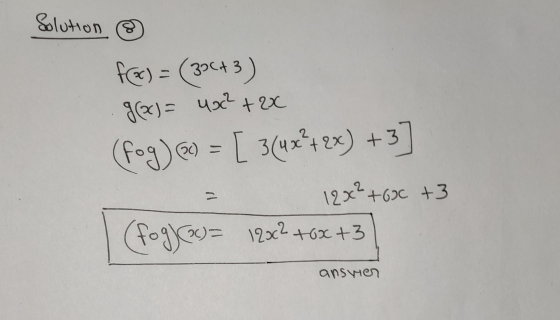 Solution ⑧
f(x) = (3x+3)
g(x) = 4x² + 2x
(fog)(x) = [ 3(4x²+2x) + 3 ]
= 12x² + 6x + 3
(fog)(x) = 12x² + 6x + 3
answer